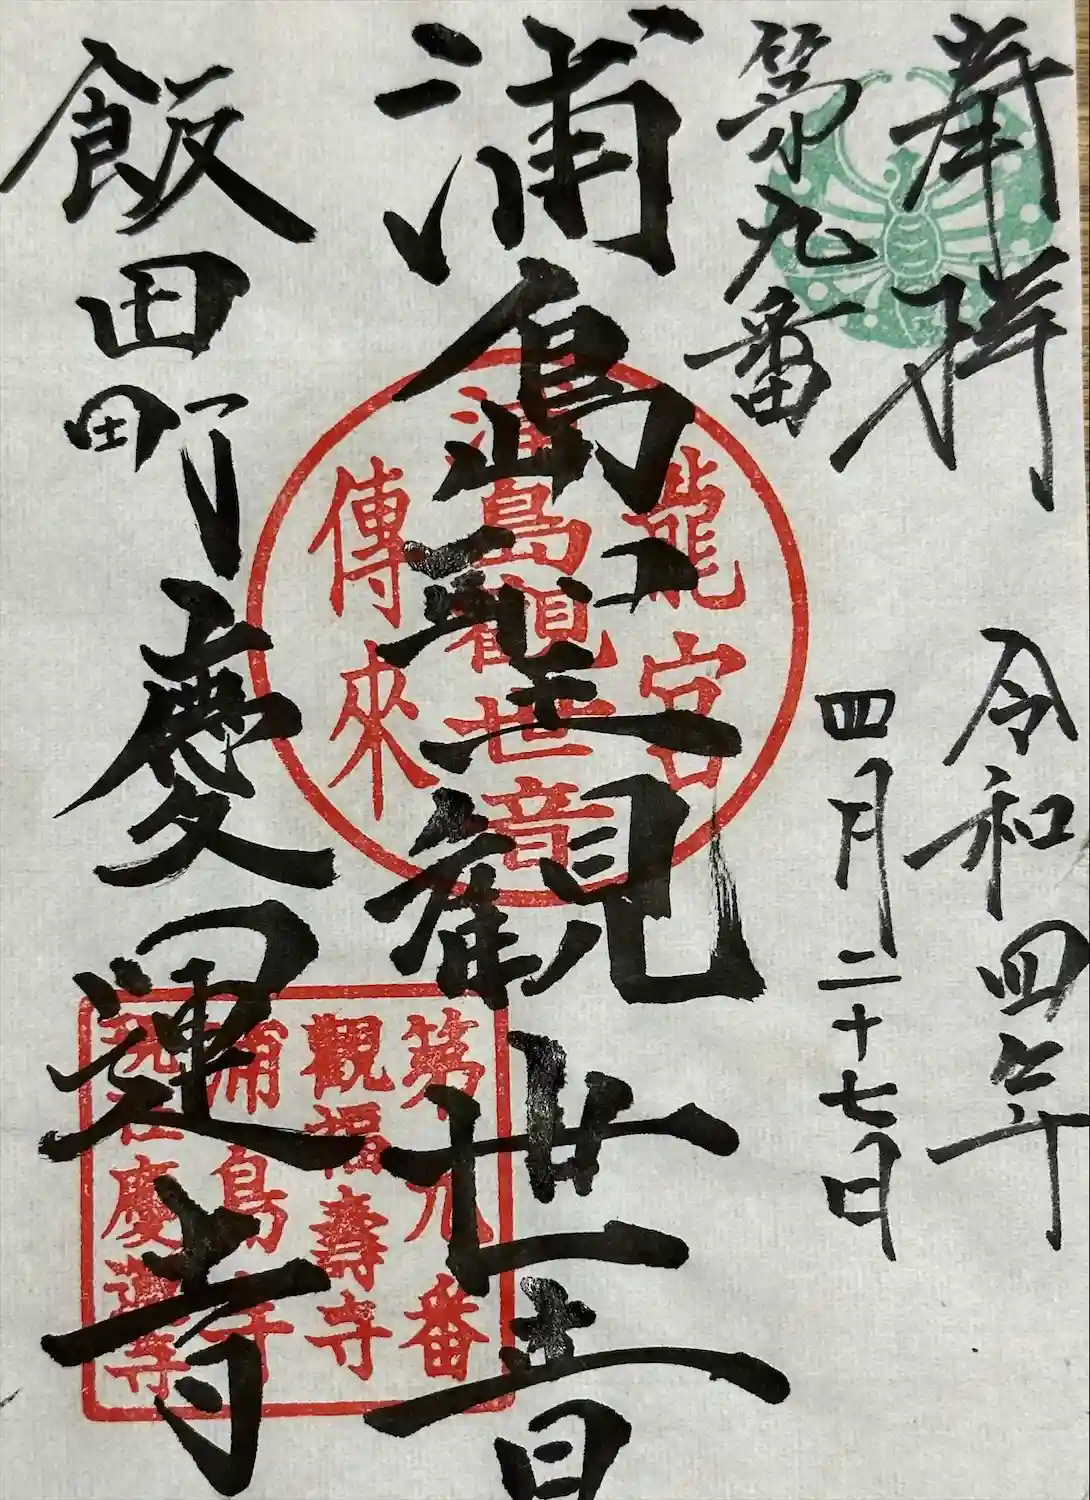 奉拝
令和四年
四月二十七日
第九番
浦島聖観世音
飯田町慶運寺
龍宮
浦島観世音
傳來
第九番
觀福壽寺
浦島寺
慶運寺